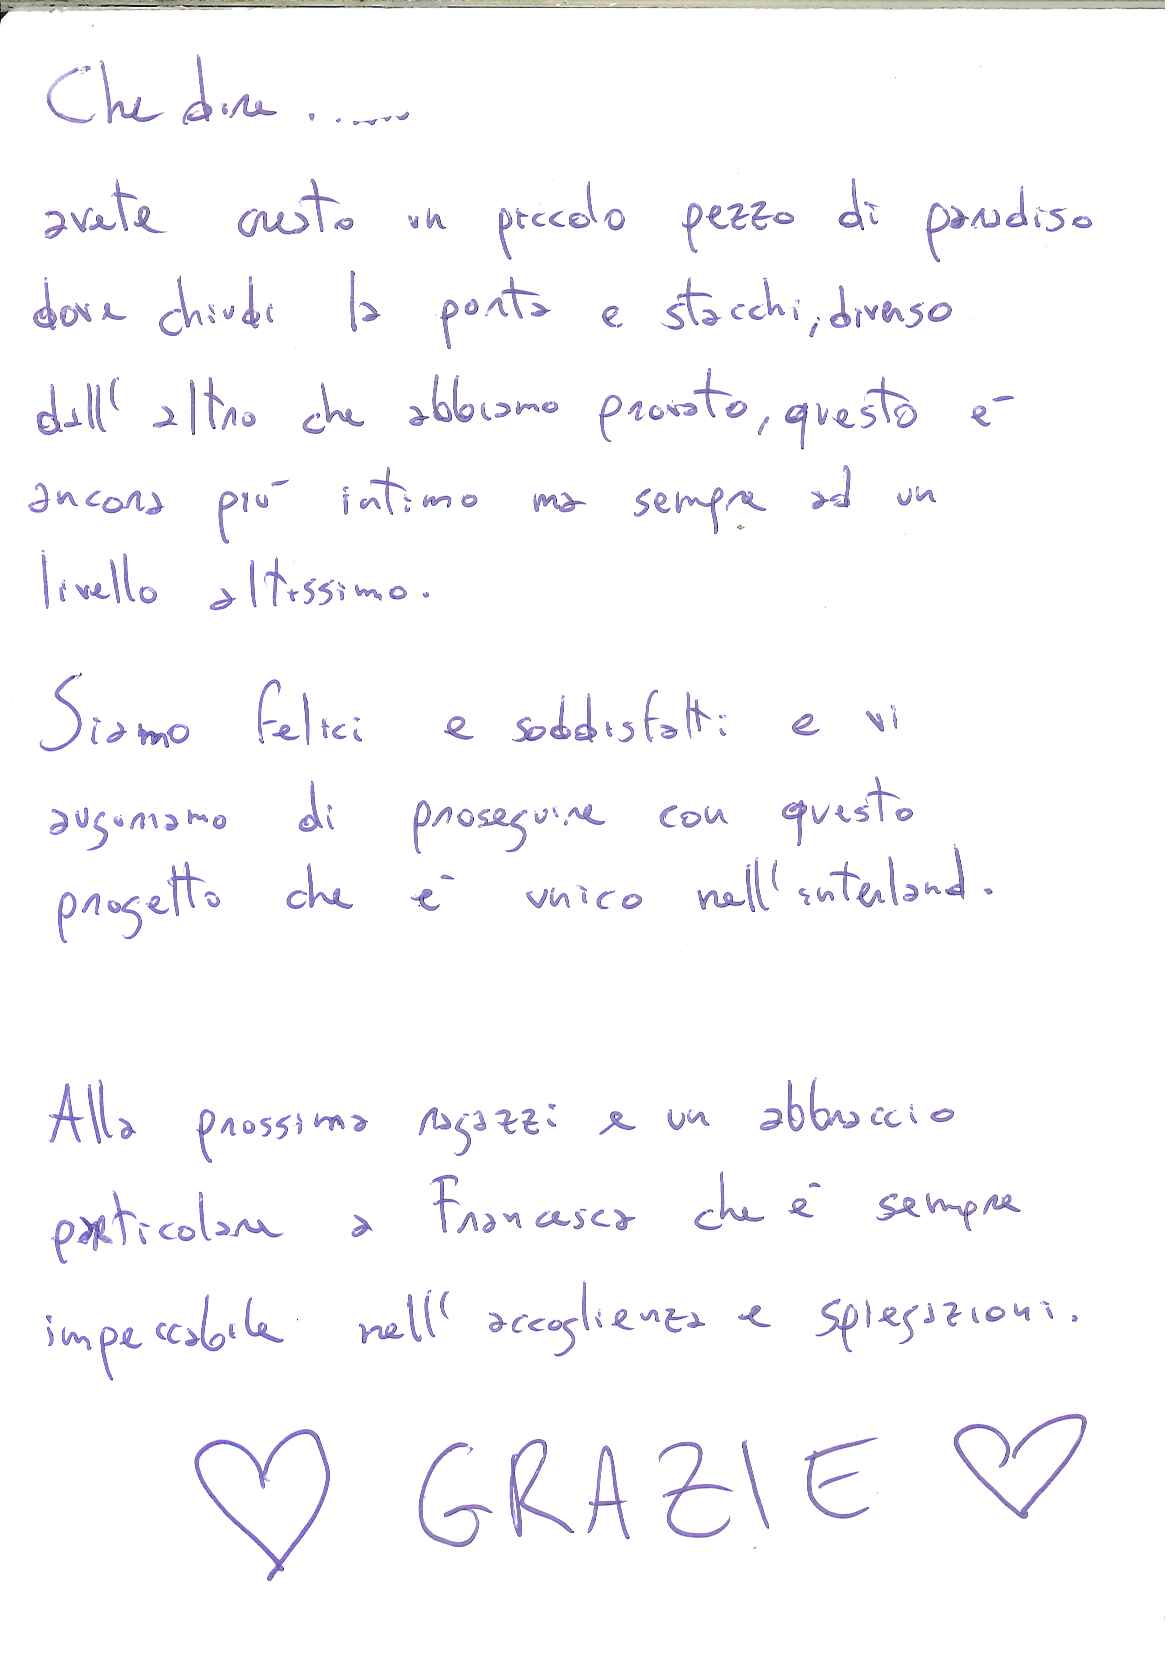 Che dire .......
avete creato un piccolo pezzo di paradiso
dove chiudi la porta e stacchi, diverso
dall'altro che abbiamo provato, questo è
ancora più intimo ma sempre ad un
livello altissimo.
Siamo felici e soddisfatti e vi
auguriamo di proseguire con questo
progetto che è unico nell'interland.
Alla prossima ragazzi e un abbraccio
particolare a Francesca che è sempre
impeccabile nell'accoglienza e spiegazioni.
♡ GRAZIE ♡